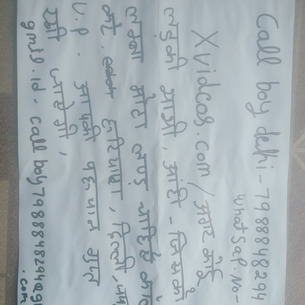 Call boy delhi - 7988848291
Whatsep. no
Xvideos.com / अगर कोई
लड़की भाभी, आंटी - जिसको
लम्बा मोटा लण्ड चाहिए
करे. हरियाणा, दिल्ली
U.P. आपकी पहचान गुप्त
रखी जायेगी,
gmil.id - call boy 7988848291
.com